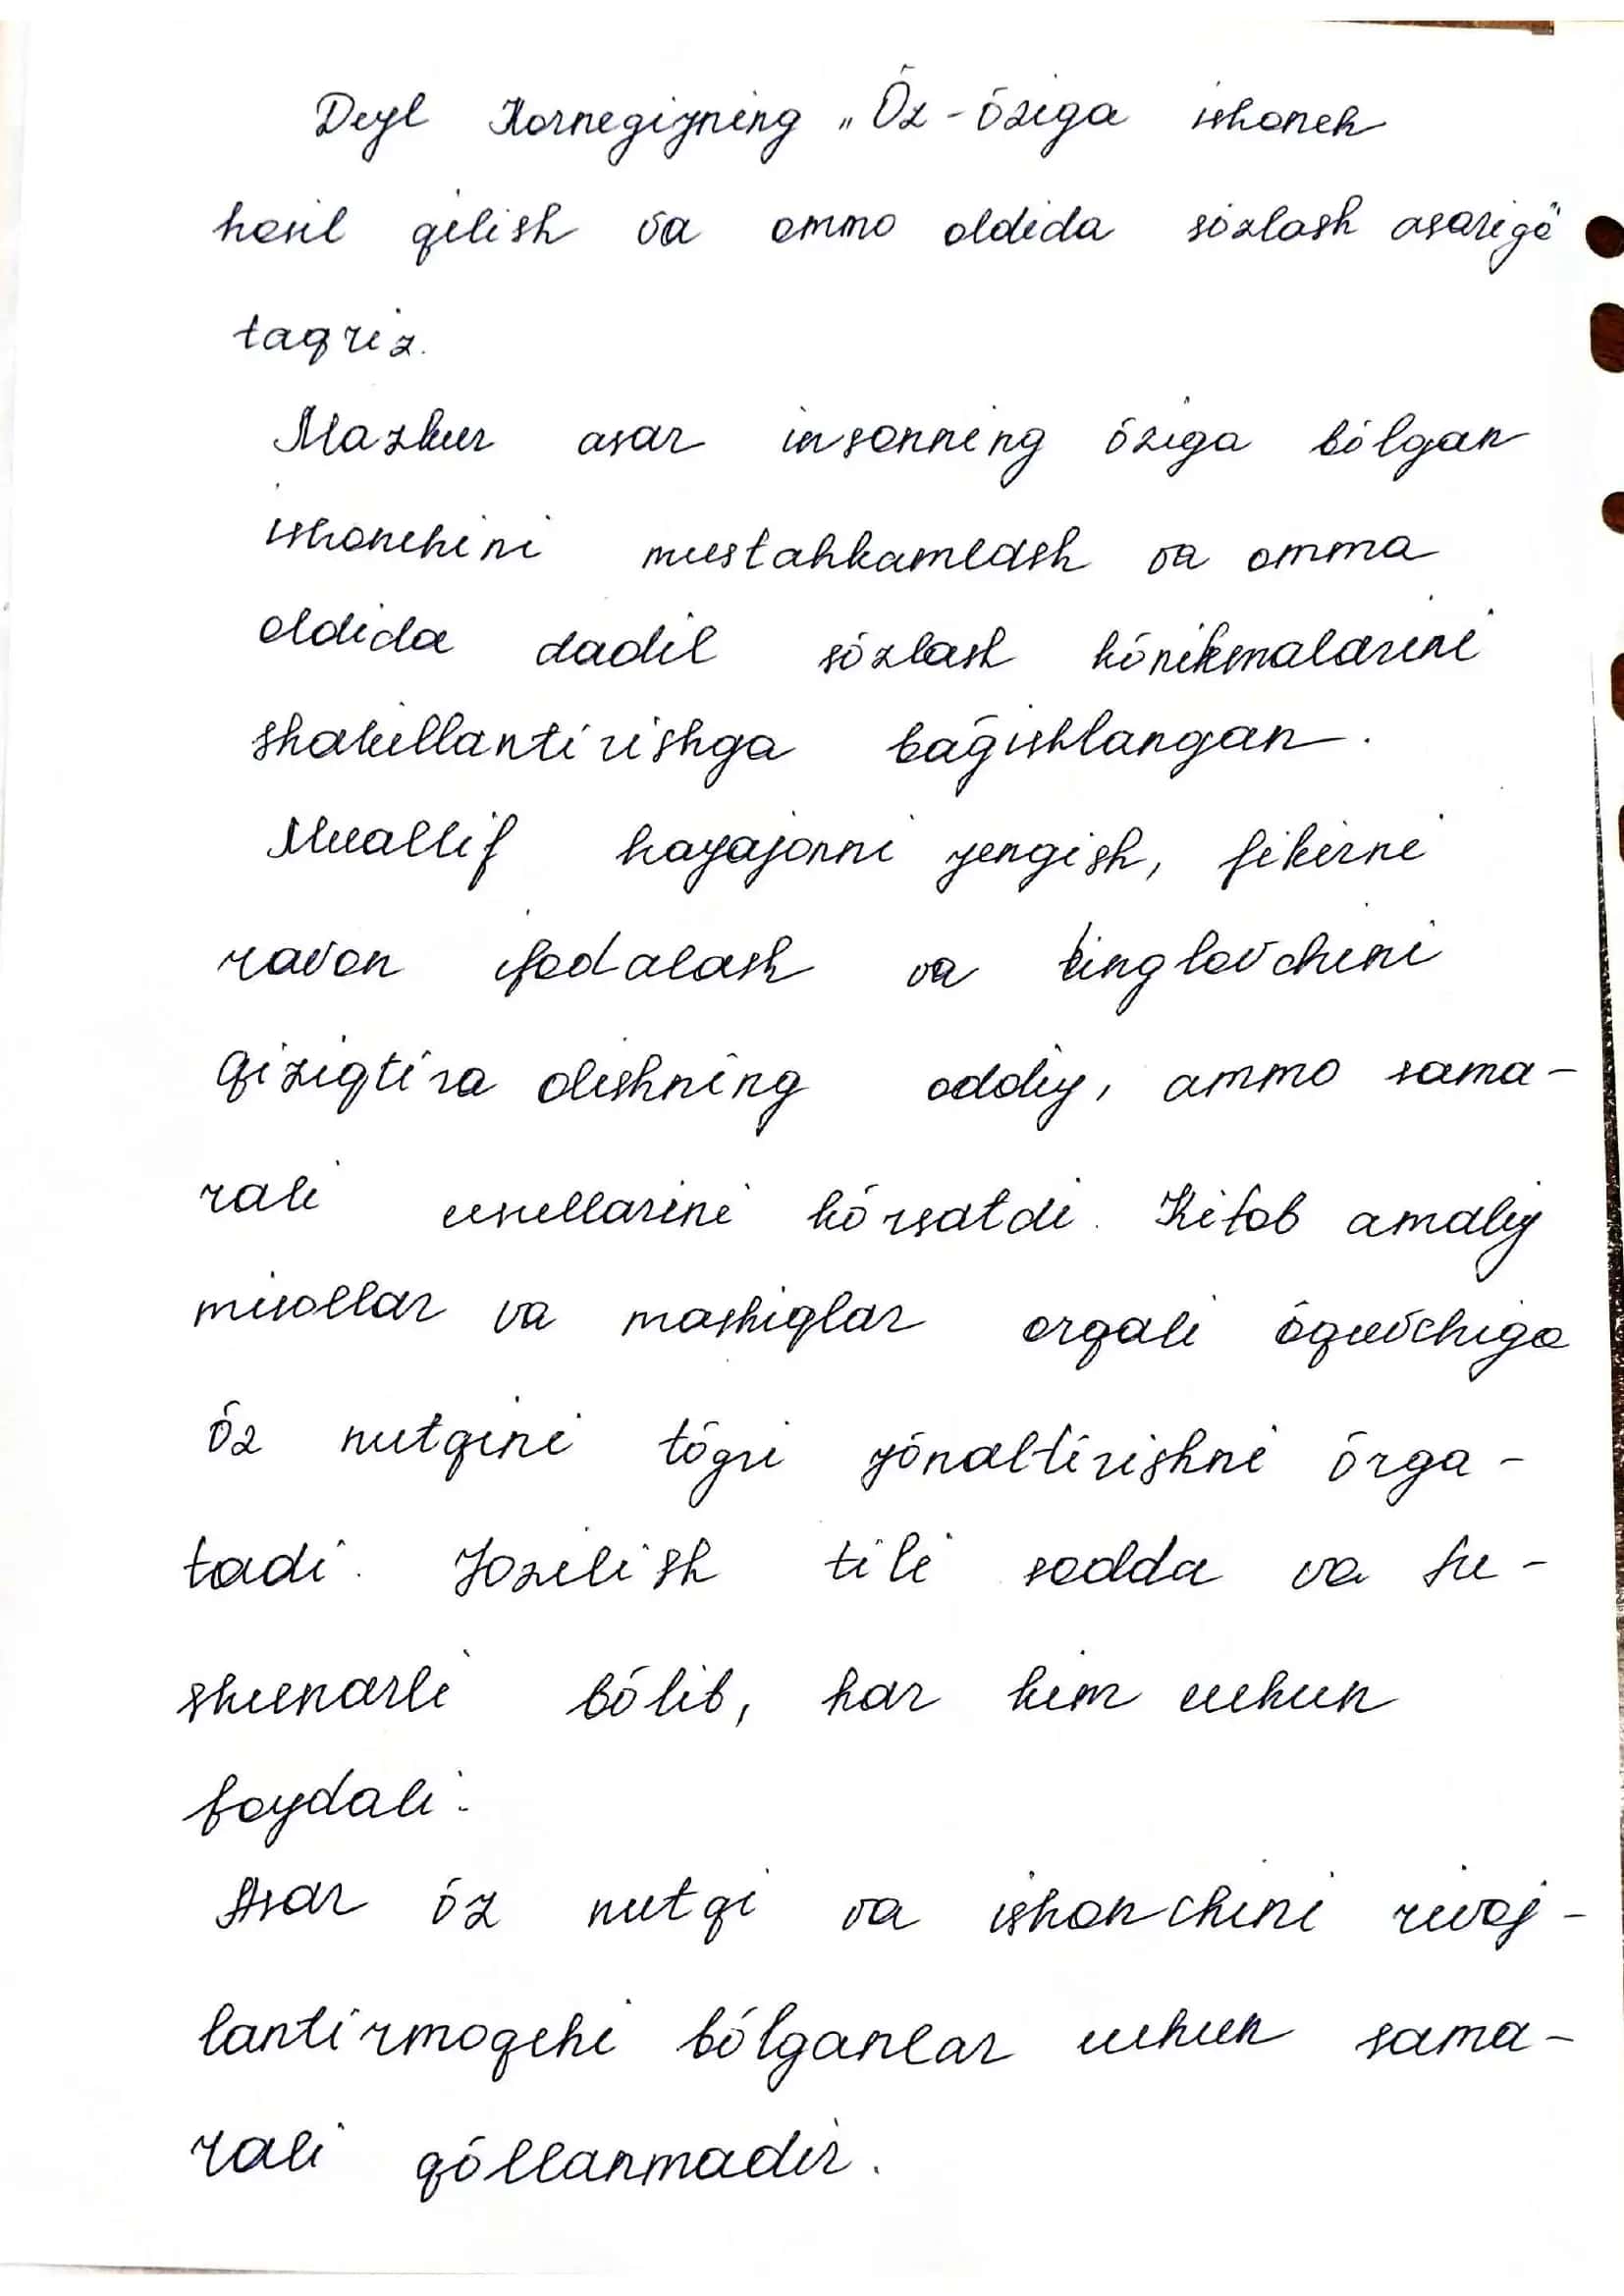 Deyl Kornegiyning „Õz-õziga ishonch
hosil qilish va ommo oldida sõzlash asariga"
taqriz.
Mazkur asar insonning õziga bõlgan
ishonchini mustahkamlash va omma
oldida dadil sõzlash kõnikmalarini
shakillantirishga bag̃ishlangan.
Muallif hayajonni yengish, fikirni
ravon ifodalash va tinglovchini
qiziqtira olishning oddiy, ammo sama-
rali usullarini kõrsatdi. Kitob amaliy
misollar va mashiqlar orqali õquvchiga
õz nutqini tõg̃ri yõnaltirishni õrga-
tadi. Yozilish tili sodda va tu-
shunarli bõlib, har kim uchun
foydali.
Asar õz nutqi va ishonchini rivoj-
lantirmoqchi bõlganlar uchun sama-
rali qõllanmadir.